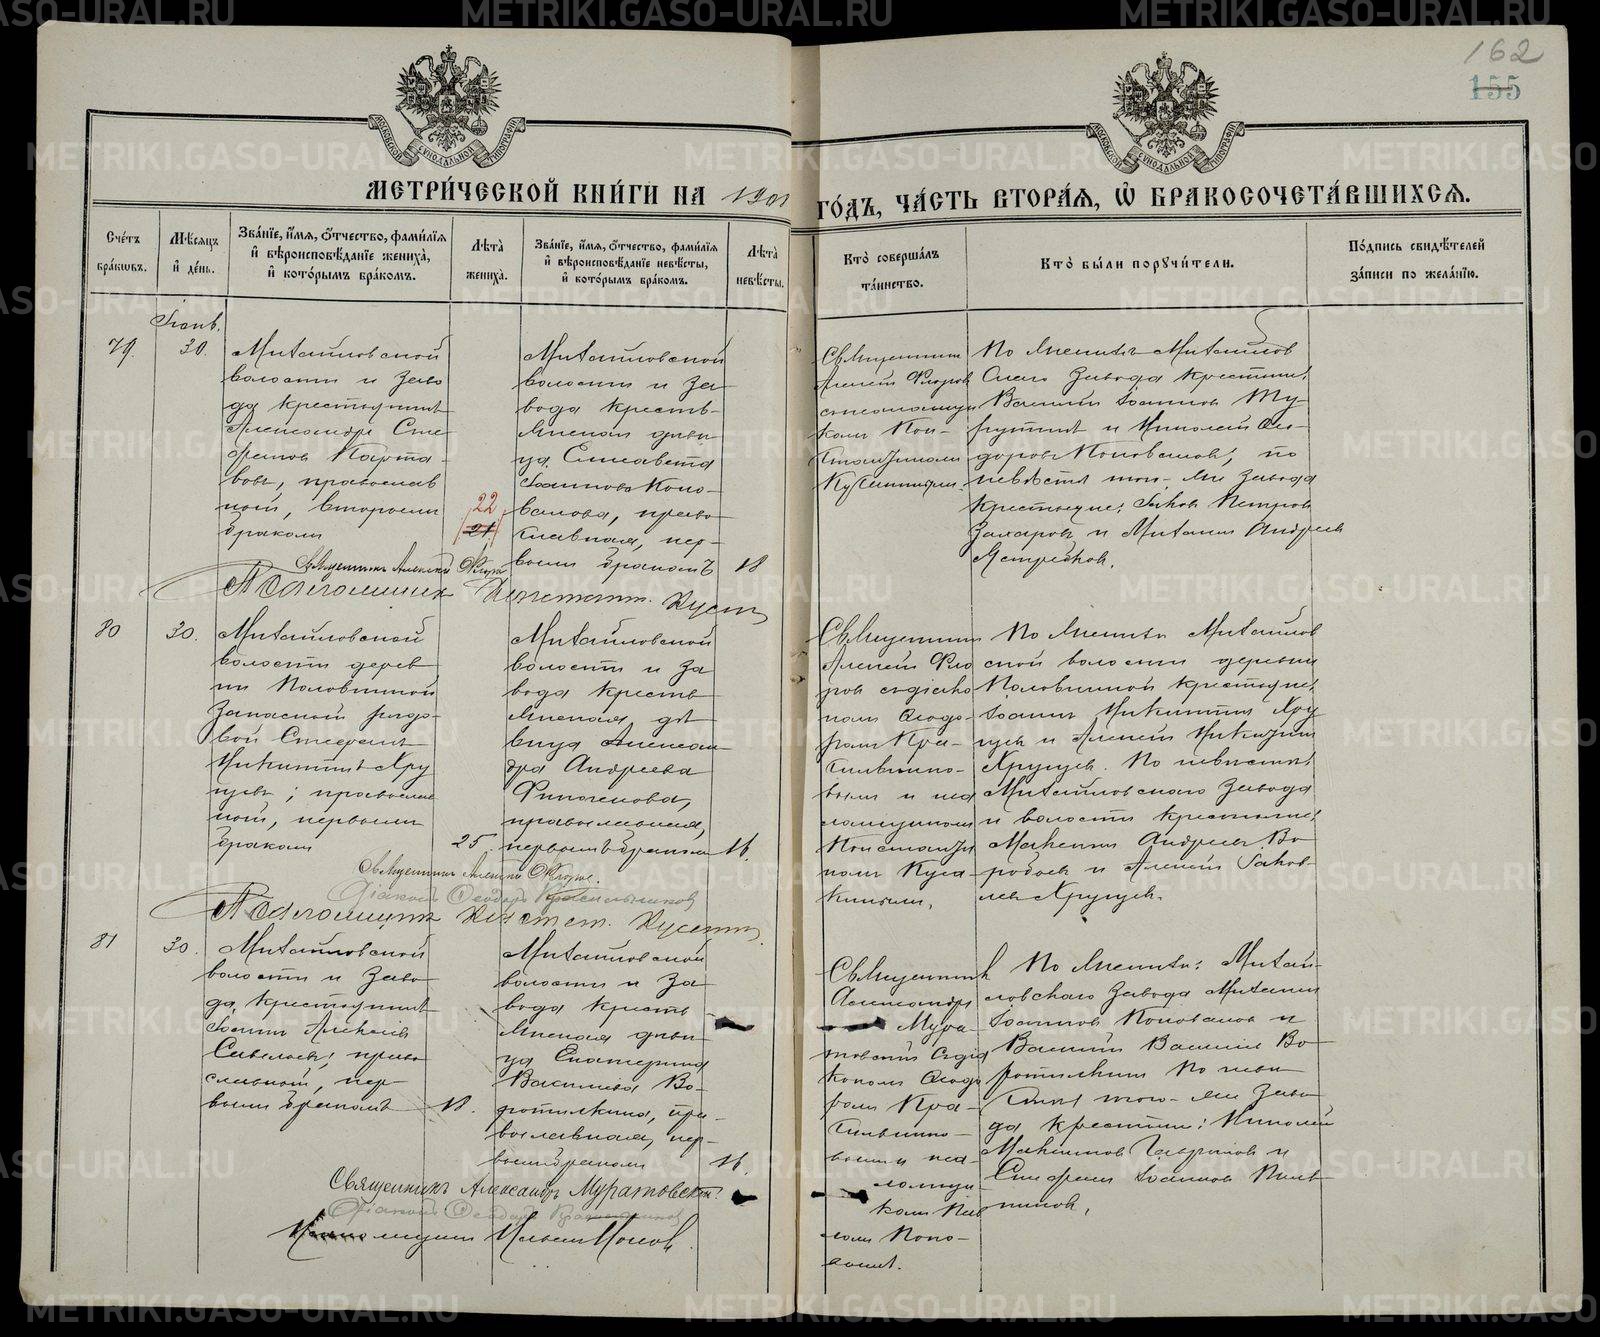 162
155
МЕТРИ́ЧЕСКОЙ КНИ́ГИ НА 1901 ГО́ДЪ, ЧА́СТЬ ВТОРА́Я, Ѡ҆ БРАКОСОЧЕТА́ВШИХСЯ.
Сче́тъ бра́кѡвъ.
Мѣ́сяцъ и҆ де́нь.
Зва́нїе, и҆́мя, ѻ҆́тчество, фами́лїя и҆ вѣроисповѣ́данїе жениха̀, и҆ кото́рымъ бра́комъ.
Лѣ́та жениха̀.
Зва́нїе, и҆́мя, ѻ҆́тчество, фами́лїя и҆ вѣроисповѣ́данїе невѣ́сты, и҆ кото́рымъ бра́комъ.
Лѣ́та невѣ́сты.
Кто̀ соверша́лъ та́инство.
Кто̀ бы́ли порꙋчи́тели.
По́дпись свидѣ́телей за́писи по жела́нїю.
79.
Январ.
30.
Михайловской
волости и Заво
да крестьянинъ
Александръ Сте
фановъ
православ
ный, вторымъ
бракомъ
22
21
Михайловской
волости и За
вода кресть-
янская дѣви
ца Елисавета
Іоаннова Коно-
валова, право
славная, пер-
вымъ бракомъ
18
Священникъ
Алексѣй Флоров
съ псаломщи
комъ Кон-
стантиномъ
По женихѣ Михайлов
скаго Завода крестьяне:
Василій Іоанновъ
и Николай Ѳео-
доровъ Коноваловъ; по
невѣстѣ того-же Завода
крестьяне: Іаковъ Петровъ
Захаровъ и Михаилъ Андреев
Ястребковъ.
Священникъ Алексѣй Флоров
Псаломщикъ Констант.
80
30.
Михайловской
волости дерев
ни Половинной
Запасной рядо-
вой Стефанъ
Никитинъ Хру
щевъ; православ
ный, первымъ
бракомъ
25.
Михайловской
волости и За
вода кресть
янская дѣ
вица Алексан
дра Андреева
православная,
первымъ бракомъ
16.
Священникъ
Алексѣй Фло
ровъ съ діако
номъ Ѳеодо-
ромъ Кра-
сильнико-
вымъ и пса
ломщикомъ
Константи
номъ
По женихѣ Михайлов
ской волости деревни
Половинной крестьяне:
Іоаннъ Никитинъ Хру
щевъ и Алексѣй Никитинъ
Хрущевъ. По невѣстѣ:
Михайловскаго Завода
и волости крестьяне:
Андреевъ Во
робьевъ и Алексѣй Іаков
левъ Хрущевъ.
Священникъ Алексѣй Флоров.
Діаконъ Ѳеодоръ Красильников
Псаломщикъ Констант.
81
30.
Михайловской
волости и Заво
да крестьянинъ
Іоаннъ Алексѣев
Савельевъ; право
славный, пер
вымъ бракомъ
18.
Михайловской
волости и За
вода кресть
янская дѣви
ца Екатерина
Васильева Во-
ротилкина, пра-
вославная, пер-
вымъ бракомъ
16.
Священникъ
Александръ
Мура
товскій съ діа
кономъ Ѳеодо
ромъ Кра-
сильнико-
вымъ и пса-
ломщи
комъ
По женихѣ: Михай-
ловскаго Завода Михаилъ
Іоанновъ Коноваловъ и
Василій Васильев Во
ротилкинъ По невѣ
стѣ того-же Заво
да крестьяне: Николай
и
Стефанъ Іоанновъ
Священникъ Александръ Муратовскій.
Діаконъ Ѳеодоръ Красильников
METRIKI.GASO-URAL.RU